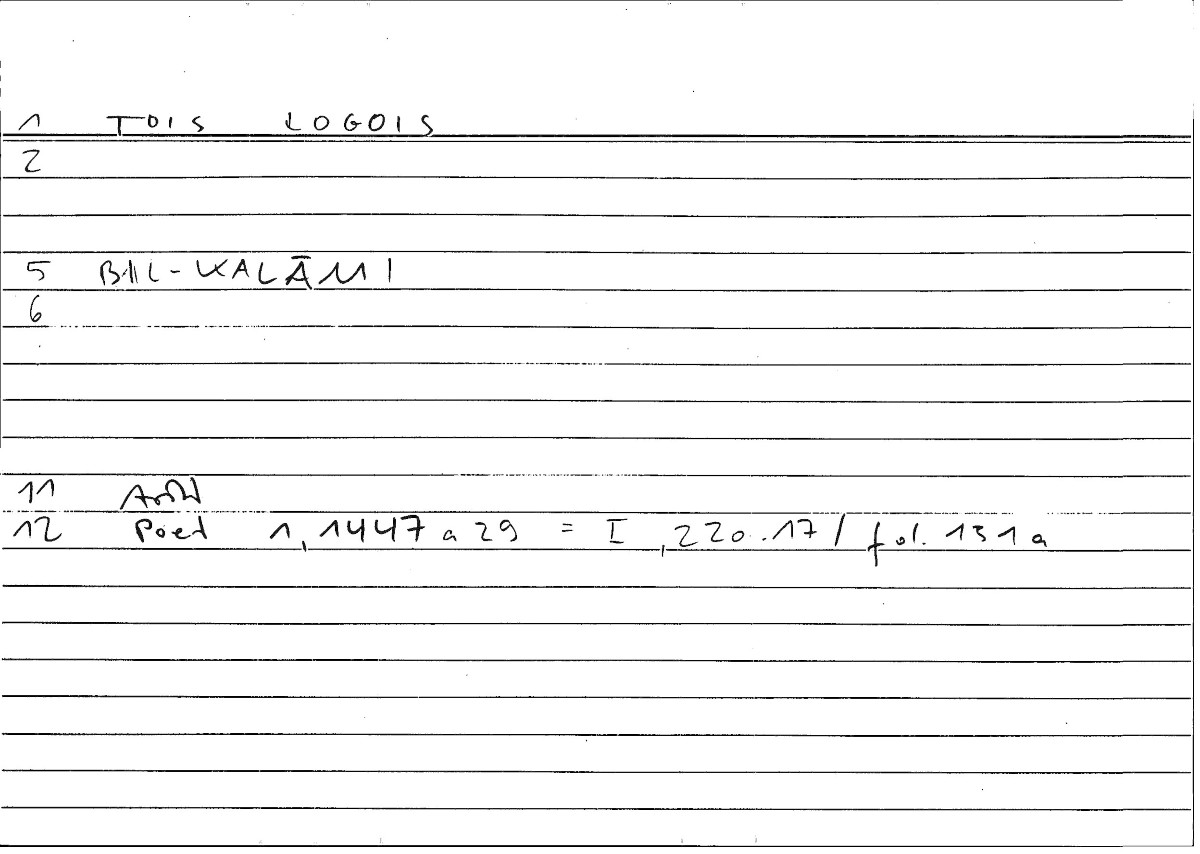 1 TOIS LOGOIS
2
5 BIL-KALĀMI
6
11
12 Poet 1,1447 a 29 = I,220.17/ fol. 131 a